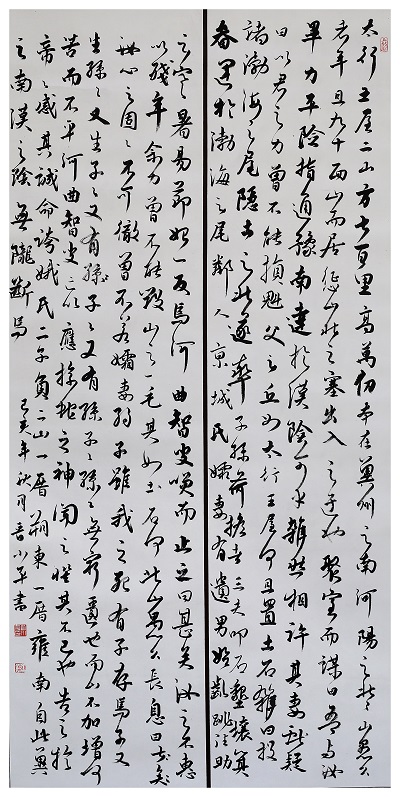 太行王屋二山方七百里高萬仞本在冀州之南河陽之北々山愚公
者年且九十面山而居懲山北之塞出入之迂也聚室而謀曰吾与汝
畢力平險指通豫南達於漢陰可乎雜然相許其妻獻疑
曰以君之力曾不能損魁父之丘如太行王屋何且置土石雜曰投
諸渤海之尾隱土之北遂率子孫荷擔者三夫叩石墾壤箕
畚運於渤海之尾鄰人京城氏孀妻有遺男始齔跳往助
之寒暑易節始一反焉河曲智叟笑而止之曰甚矣汝之不惠
以殘年余力曾不能毀山之一毛其如土石何北山愚公長息曰
汝心之固々不可徹曾不若孀妻弱子雖我之死有子存焉子又
生孫々又生子々又有孫子々又有孫子々孫々無窮匱也而山不加增何
苦而不平河曲智叟亡以應操蛇之神聞之懼其不已也告之於
帝々感其誠命誇娥氏二子負二山一厝朔東一厝雍南自此冀
之南漢之陰無隴斷焉 己亥年秋月 小平書